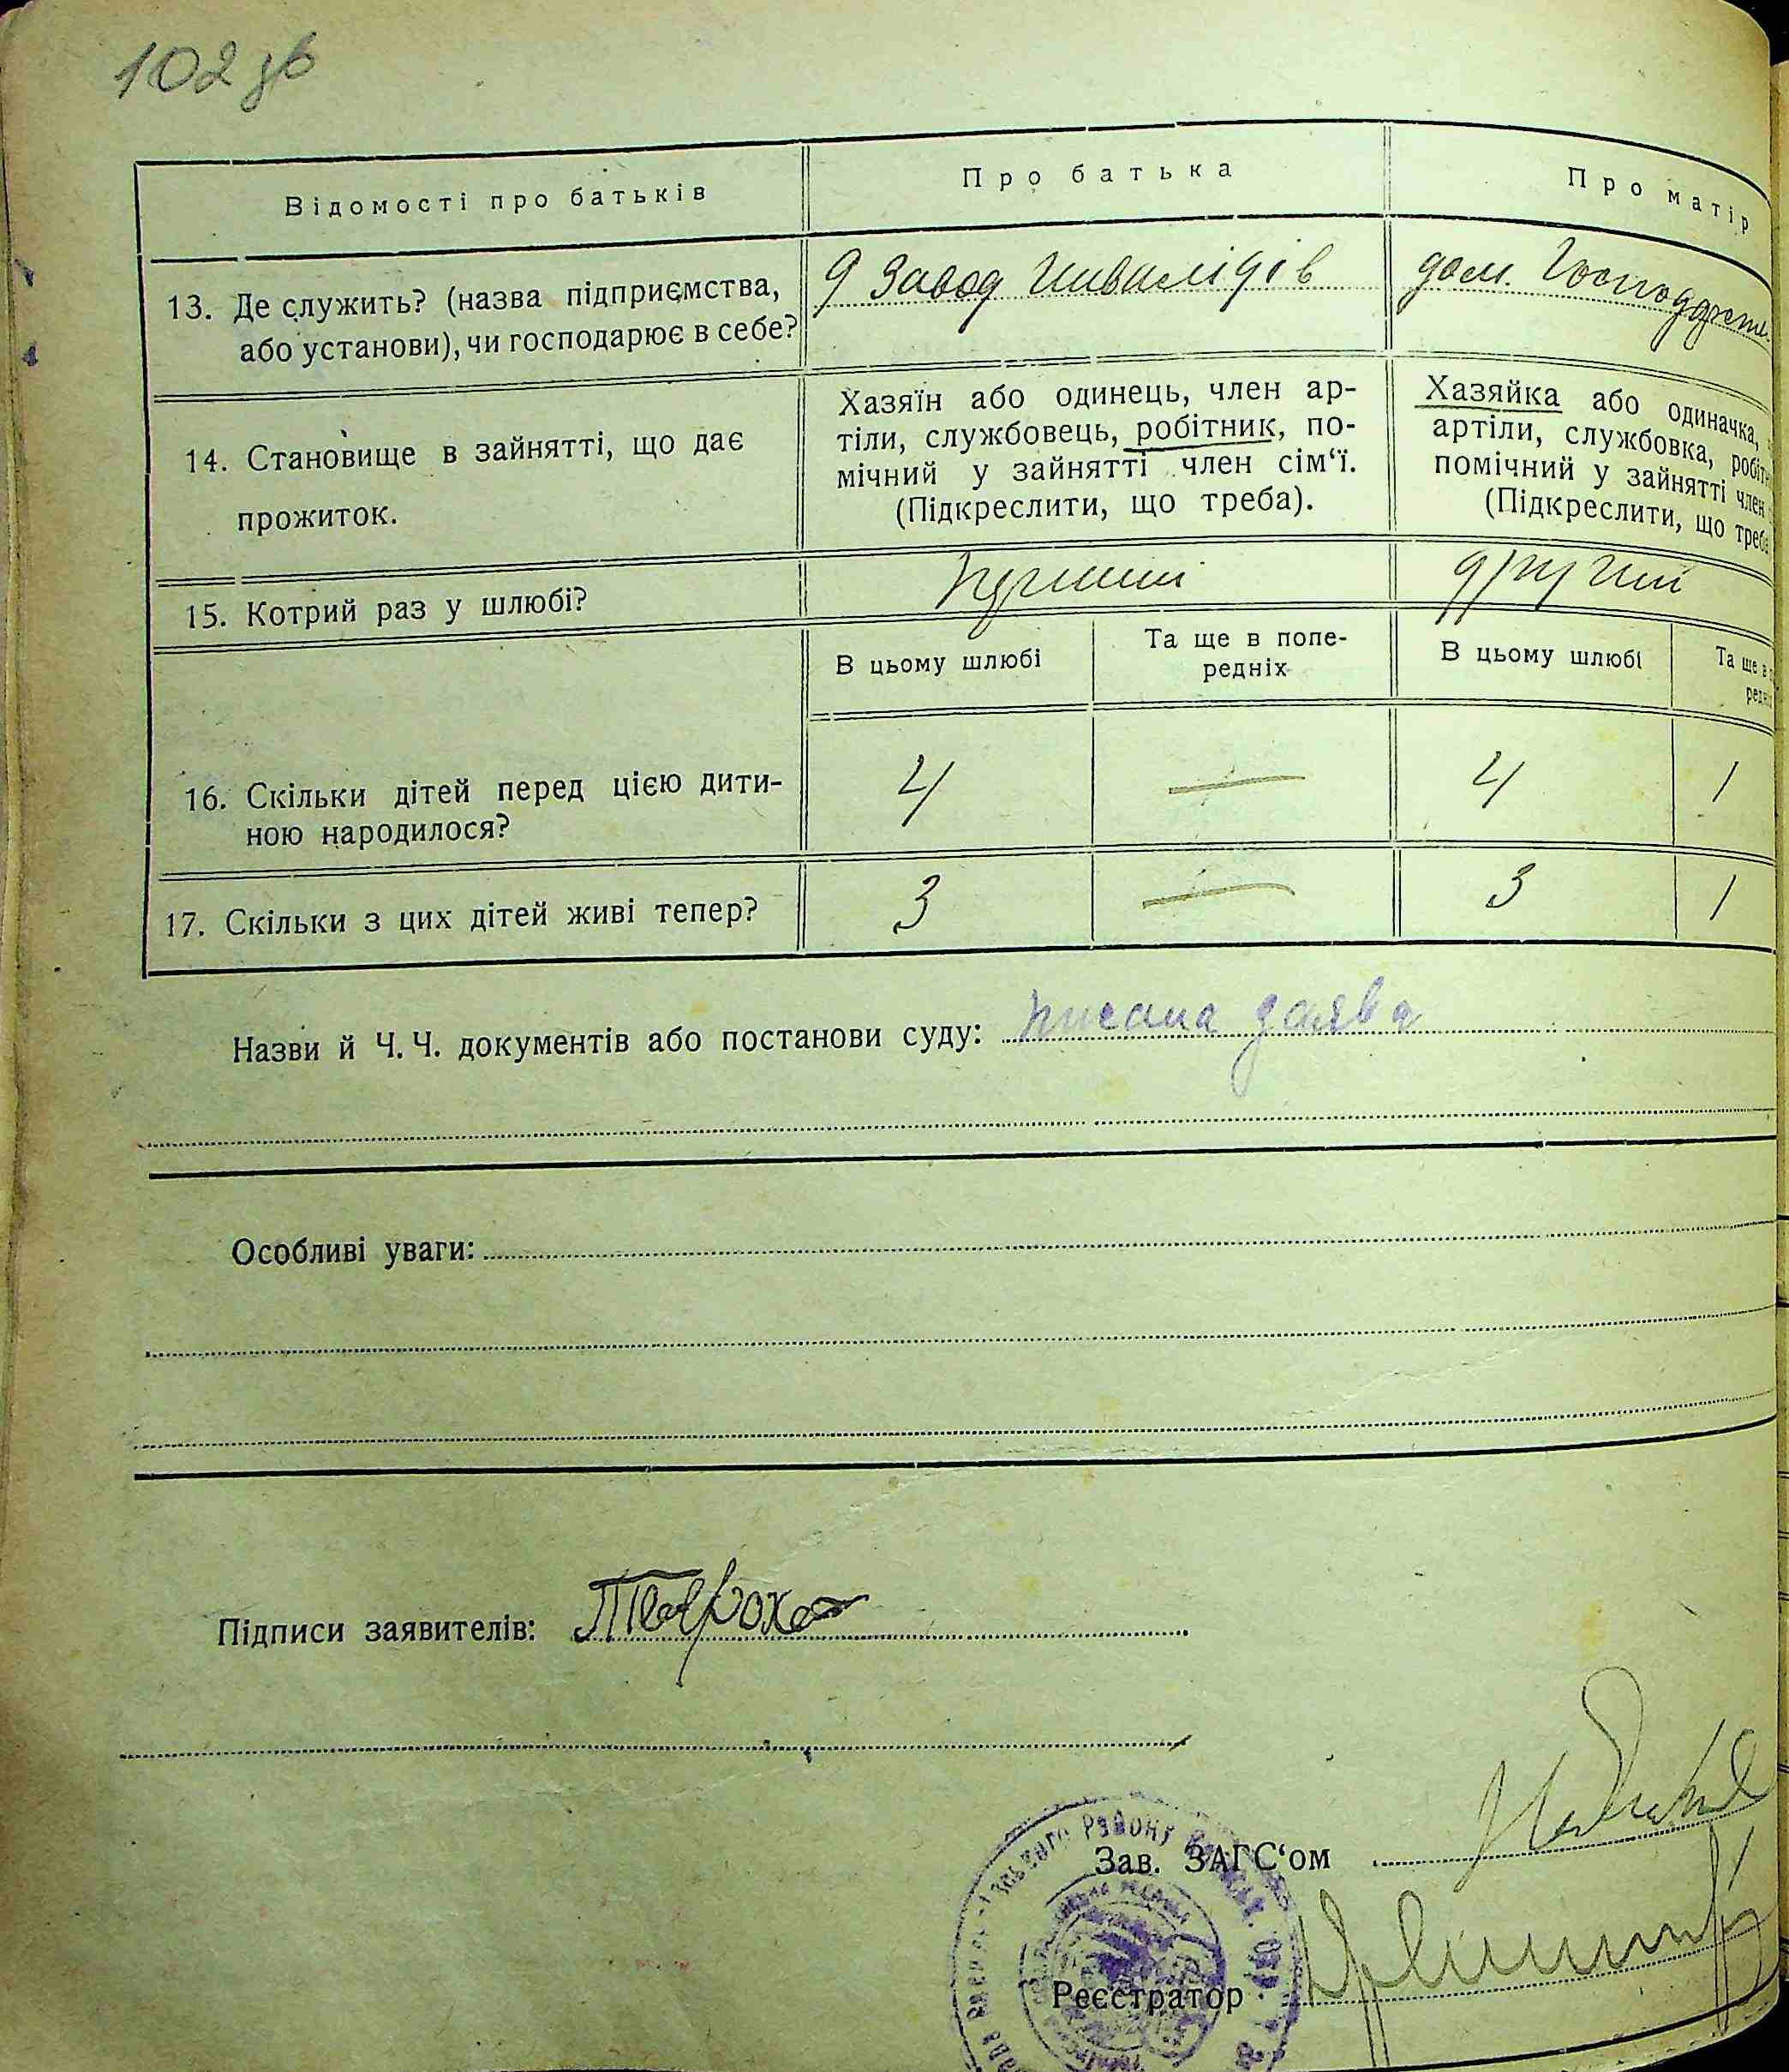 102 зв
Відомості про батьків
Про батька
Про матір
13. Де служить? (назва підприємства,
або установи), чи господарює в себе?
9 Завод Инвалідів
дом.
14. Становище в зайнятті, що дає
прожиток.
Хазяїн або одинець, член ар-
тіли, службовець, робітник, по-
мічний у зайнятті член сім‘ї.
(Підкреслити, що треба).
Хазяйка або одиначка,
артіли, службовка, робіт
помічний у зайнятті член
(Підкреслити, що треба
15. Котрий раз у шлюбі?
другий
В цьому шлюбі
Та ще в попе-
редніх
В цьому шлюбі
Та ще в
редн
16. Скільки дітей перед цією дити-
ною народилося?
4 — 4 1
17. Скільки з цих дітей живі тепер?
3 — 3 1
Назви й Ч. Ч. документів або постанови суду: писана заява
Особливі уваги:
Підписи заявителів:
Зав. ЗАГС‘ом
Реєстратор
Району